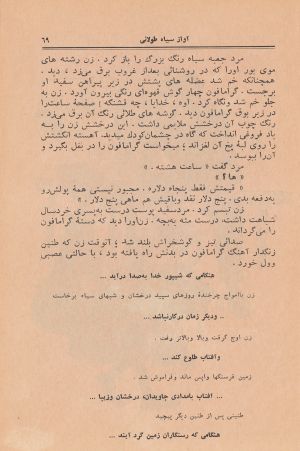 آواز سیاه طولانی
۶۹
مرد جعبه سیاه رنگ بزرگ را باز کرد. زن رشته های
موی بور اورا که در روشنائی بعداز غروب برق می‌زد، دید.
همچنانکه خم شد عضله های پشتش در زیر پیراهن سفید او
گشت. گرامافون چهار گوش قهوه‌ای رنگی بیرون آورد. زن به
جلو خم شد ونگاه کرد. اوه، خدایا، چه قشنگه؛ صفحهٔ ساعت‌را
در زیر بوق گرامافون دید. گوشه های طلائی رنگ آن برق می‌زد.
رنگ چوب آن درخشش ملایمی داشت. این درخشش زن را به
یاد فروغی انداخت که گاه در چشمان‌کودك میدید. آهسته انگشتش
را روی لبهٔ یخ آن لغزاند؛ میخواست گرامافون را در بغل بگیرد و
آن‌را ببوسد.
مرد گفت « ساعت هشته . »
« ها؟ »
« قیمتش فقط پنجاه دلاره. مجبور نیستی همهٔ پولش‌رو
یه‌دفعه بدی. پنج دلار نقد وباقیش هم ماهی پنج دلار. »
زن تبسم کرد. مردسفید پوست درست به‌پسری خردسال
شباهت داشت، درست مثه یه‌بچه. زن‌اورا دید که دستهٔ گرامافون
را می‌چرخاند.
صدائی تیز و گوشخراش بلند شد؛ آنوقت زن که طنین
زنگدار آهنگ گرامافون در بدنش راه یافته بود، با حالتی عصبی
وول خورد.
هنگامی که شیپور خدا به‌صدا درآید ...
زن باامواج چرخندهٔ روزهای سپید درخشان و شبهای سیاه برخاست
... ودیگر زمان درکارنباشد ...
زن اوج گرفت وبالا وبالاتر رفت .
... وآفتاب طلوع کند ...
زمین فرسنگها واپس ماند وفراموش شد .
... آفتاب بامدادی جاویدان، درخشان وزیبا ...
طنینی پس از طنین دیگر پیچید
هنگامی که رستگاران زمین گرد آیند ...